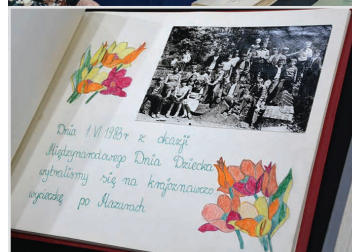 Dnia 1 VI 1983r z okazji
Międzynarodowego Dnia Dziecka
wybraliśmy się na krajoznawczo
wycieczkę po Mazurach